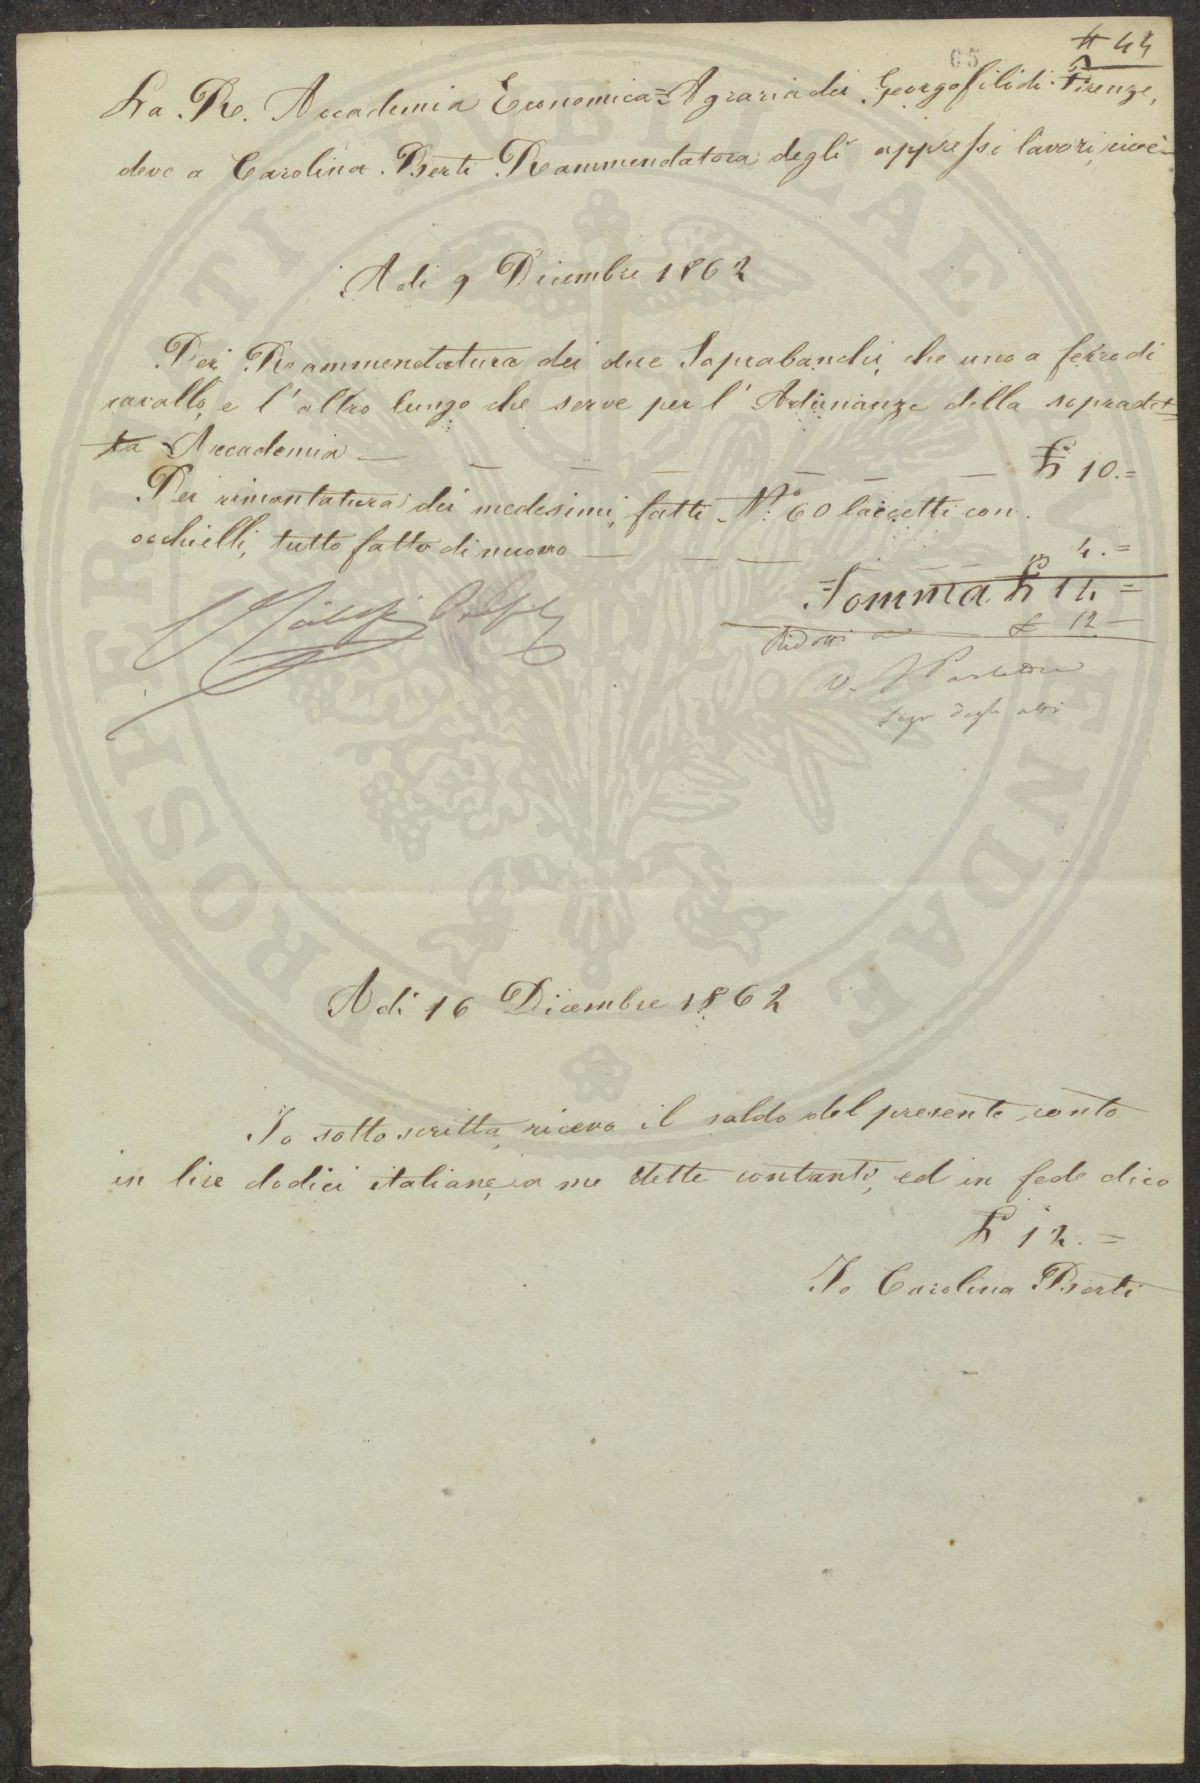 65
# 44
La R. Accademia Economica=Agraria dei Georgofili di Firenze,
deve a Carolina Berti Rammendatora degli appressi lavori, cioè
A di 9 Dicembre 1862
Per Rammendatura dei due Soprabanchi, che uno a ferro di
cavallo, e l'altro lungo che serve per l'Adunanze della sopradet=
ta Accademia — — — — — — £ 10.=
Per rimontatura dei medesimi, fatti N.o 60 laccetti con
occhielli, tutto fatto di nuovo — — — — 4.=
Somma £ 14.=
Ridotti a £ 12 —
V.
Segr degli atti
A di 16 Dicembre 1862
Io sotto scritta, ricevo il saldo del presente conto
in lire dodici italiane, a me dette contanti, ed in fede dico
£ 12.=
Io Carolina Berti
PROSPERITATI PUBLICAE AUGENDAE